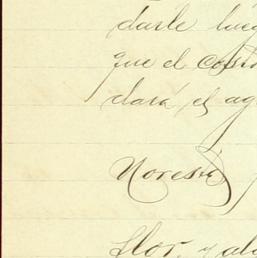 darle lueg
que el costo
dará, el ag
Noresta
Flor, y alg